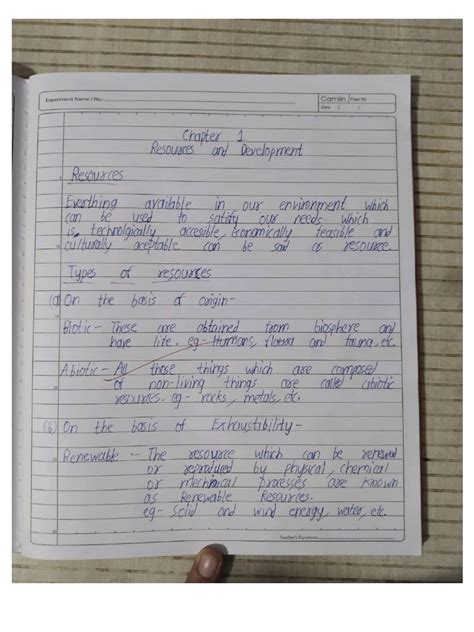 Experiment Name / No.:
Camlin Page No.
Date / /
Chapter 1
Resources and Development
Resources
Everthing available in our environment which
can be used to satisfy our needs which
is technolgically accesible, economically feasible and
culturally aceptable can be said as resource
Types of resources
(a) On the basis of origin-
Biotic - These are obtained from biosphere and
have life. eg- Humans, flora and fauna, etc.
Abiotic - All those things which are composed
of non-living things are called abiotic
resources. eg- rocks, metals, etc.
(b) On the basis of Exhaustibility-
Renewable - The resource which can be renewed
or reproduced by physical, chemical
or mechnical processes are known
as Renewable Resources.
eg- Solid and wind energy, water, etc.
Teacher's Signature